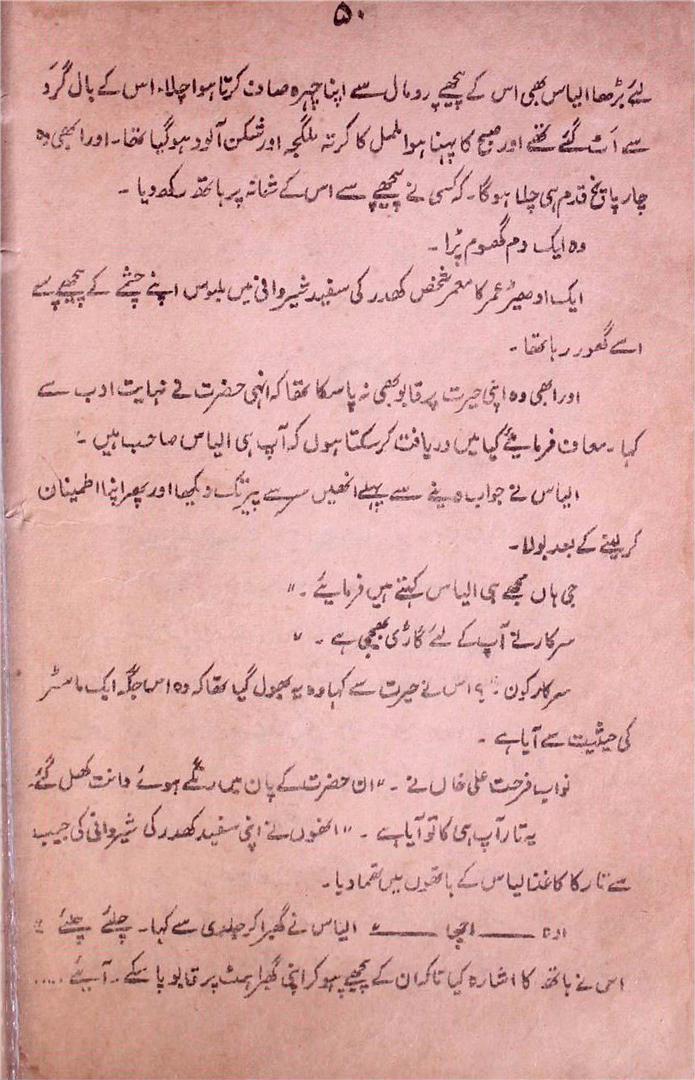 ۵۰
لئے بڑھا الیاس بھی اس کے پیچھے رومال سے اپنا چہرہ صاف کرتا ہوا چلا، اس کے بال گرد
سے اَٹ گئے تھے اور صبح کا پہنا ہوا ململ کا کرتہ ملگجہ اور شکن آلود ہوگیا تھا۔ اور ابھی وہ
چار پانچ قدم ہی چلا ہوگا۔ کہ کسی نے پیچھے سے اس کے شانہ پر ہاتھ رکھ دیا ۔
وہ ایک دم گھوم پڑا ۔
ایک ادھیڑ عمر کا معمر شخص کھدر کی سفید شیروانی میں ملبوس اپنے چشمے کے پیچھے سے
اسے گھور رہا تھا ۔
اور ابھی وہ اپنی حیرت پر قابو بھی نہ پاسکا تھا کہ انہی حضرت نے نہایت ادب سے
کہا ۔ معاف فرمایئے کیا میں دریافت کرسکتا ہوں کہ آپ ہی الیاس صاحب ہیں ۔"
الیاس نے جواب دینے سے پہلے انھیں سر سے پیر تک دیکھا اور پھر اپنا اطمینان
کرلینے کے بعد بولا۔
جی ہاں مجھے ہی الیاس کہتے ہیں فرمایئے ۔ "
سرکار نے آپ کے لئے گاڑی بھیجی ہے ۔ "
سرکار کون ۔"؟ اس نے حیرت سے کہا وہ یہ بھول گیا تھا کہ وہ اس جگہ ایک ماسٹر
کی حیثیت سے آیا ہے ۔
نواب فرحت علی خاں نے ۔ "ان حضرت کے پان میں رنگے ہوئے دانت کھل گئے۔
یہ تار آپ ہی کا تو آیا ہے ۔ " انھوں نے اپنی سفید کھدر کی شیروانی کی جیب
سے تار کا کاغذ الیاس کے ہاتھوں میں تھما دیا۔
اوہ ــــــ اچھا ــــــ " الیاس نے گھبرا کر جلدی سے کہا۔ چلئے چلئے "
اس نے ہاتھ کا اشارہ کیا تاکہ ان کے پیچھے ہو کر اپنی گھبراہٹ پر قابو پا سکے ۔ آیئے .....